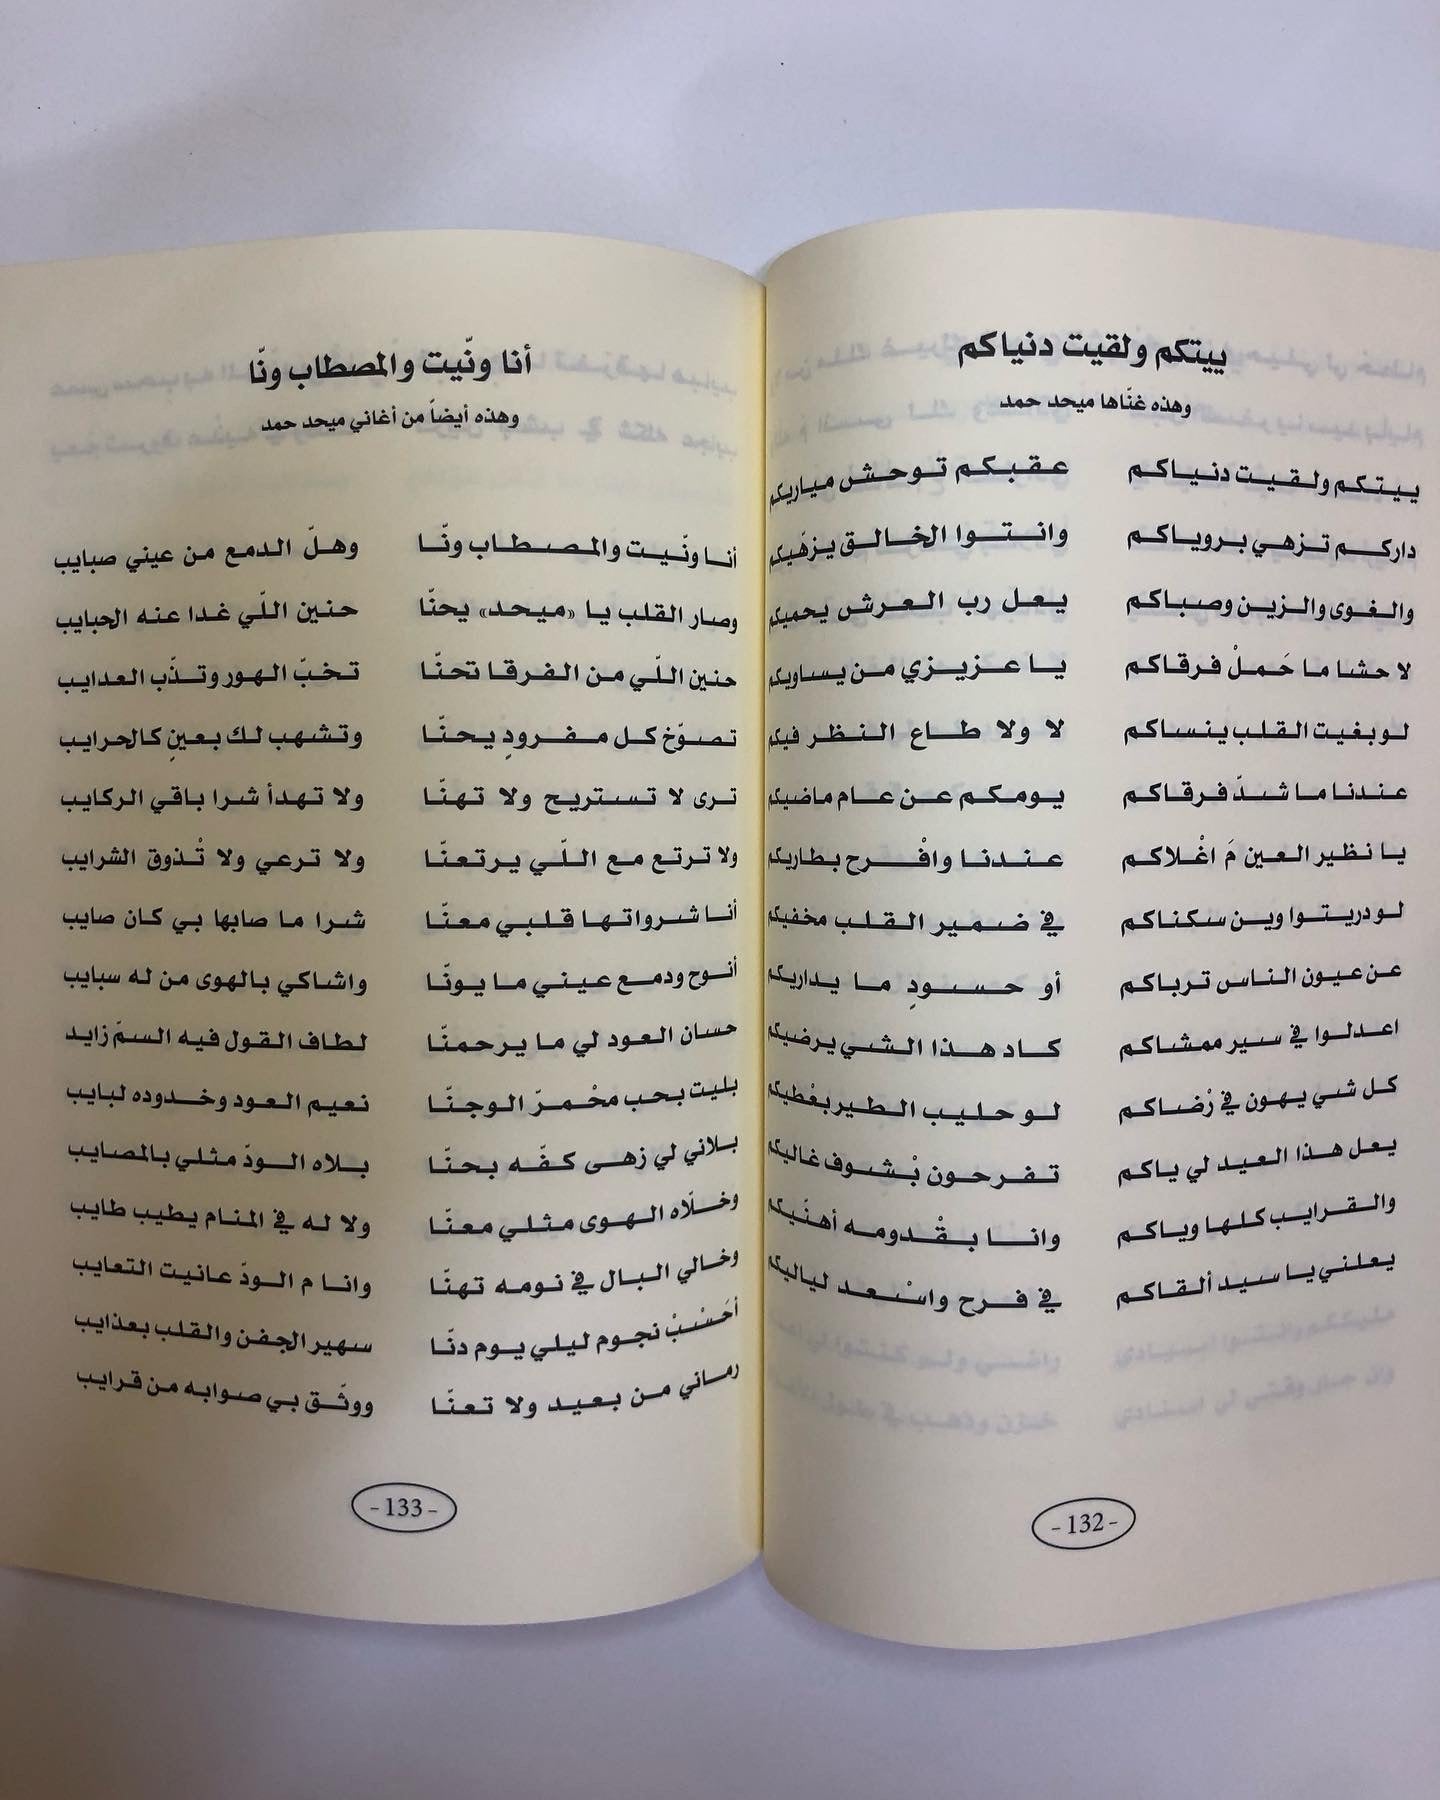 ييتكم ولقيت دنياكم
وهذه غنّاها ميحد حمد
ييتكم ولقيت دنياكم عقبكم توحش مياريكم
داركم تزهي بروياكم وانتوا الخالق يزهّيكم
والغوى والزين وصباكم يعل رب العرش يحميكم
لا حشا ما حَملْ فرقاكم يا عزيزي من يساويكم
لو بغيت القلب ينساكم لا ولا طاع النظر فيكم
عندنا ما شدّ فرقاكم يومكم عن عام ماضيكم
يا نظير العين مَ اغْلاكم عندنا وافْرح بطاريكم
لو دريتوا وين سكناكم في ضمير القلب مخفيكم
عن عيون الناس ترباكم أو حسودٍ ما يداريكم
اعدلوا في سير ممشاكم كاد هذا الشي يرضيكم
كل شي يهون في رْضاكم لو حليب الطير بعْطيكم
يعل هذا العيد لي ياكم تفرحون بْشوف غاليكم
والقرايب كلها وياكم وانا بقْدومه أهنّيكم
يعلني يا سيد ألقاكم في فرح واسْعد لياليكم
- 132 -
أنا ونّيت والمصطاب ونّا
وهذه أيضاً من أغاني ميحد حمد
أنا ونّيت والمصطاب ونّا وهلّ الدمع من عيني صبايب
وصار القلب يا «ميحد» يحنّا حنين اللّي غدا عنه الحبايب
حنين اللّي من الفرقا تحنّا تخبّ الهور وتذّب العدايب
تصوّخ كل مفرودٍ يحنّا وتشهب لك بعينٍ كالحرايب
ترى لا تستريح ولا تهنّا ولا تهدأ شرا باقي الركايب
ولا ترتع مع اللّي يرتعنّا ولا ترعي ولا تْذوق الشرايب
أنا شرواتها قلبي معنّا شرا ما صابها بي كان صايب
أنوح ودمع عيني ما يونّا واشاكي بالهوى من له سبايب
حسان العود لي ما يرحمنّا لطاف القول فيه السمّ زايد
بليت بحب محْمرّ الوجنّا نعيم العود وخدوده لبايب
بلاني لي زهى كفّه بحنّا بلاه الودّ مثلي بالمصايب
وخلّاه الهوى مثلي معنّا ولا له في المنام يطيب طايب
وخالي البال في نومه تهنّا وانا م الودّ عانيت التعايب
أحَسْبْ نجوم ليلي يوم دنّا سهير الجفن والقلب بعذايب
رماني من بعيد ولا تعنّا ووثّق بي صوابه من قرايب
- 133 -